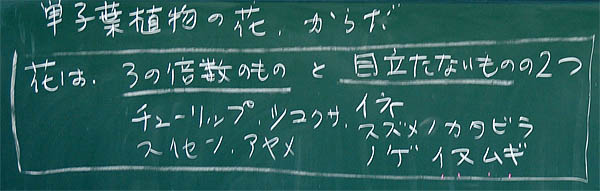 単子葉植物の花、からだ
花は、3の倍数のもの と 目立たないものの2つ
チューリップ、ツユクサ、イネ
スズメノカタビラ
スイセン、アヤメ
ノゲ イヌムギ